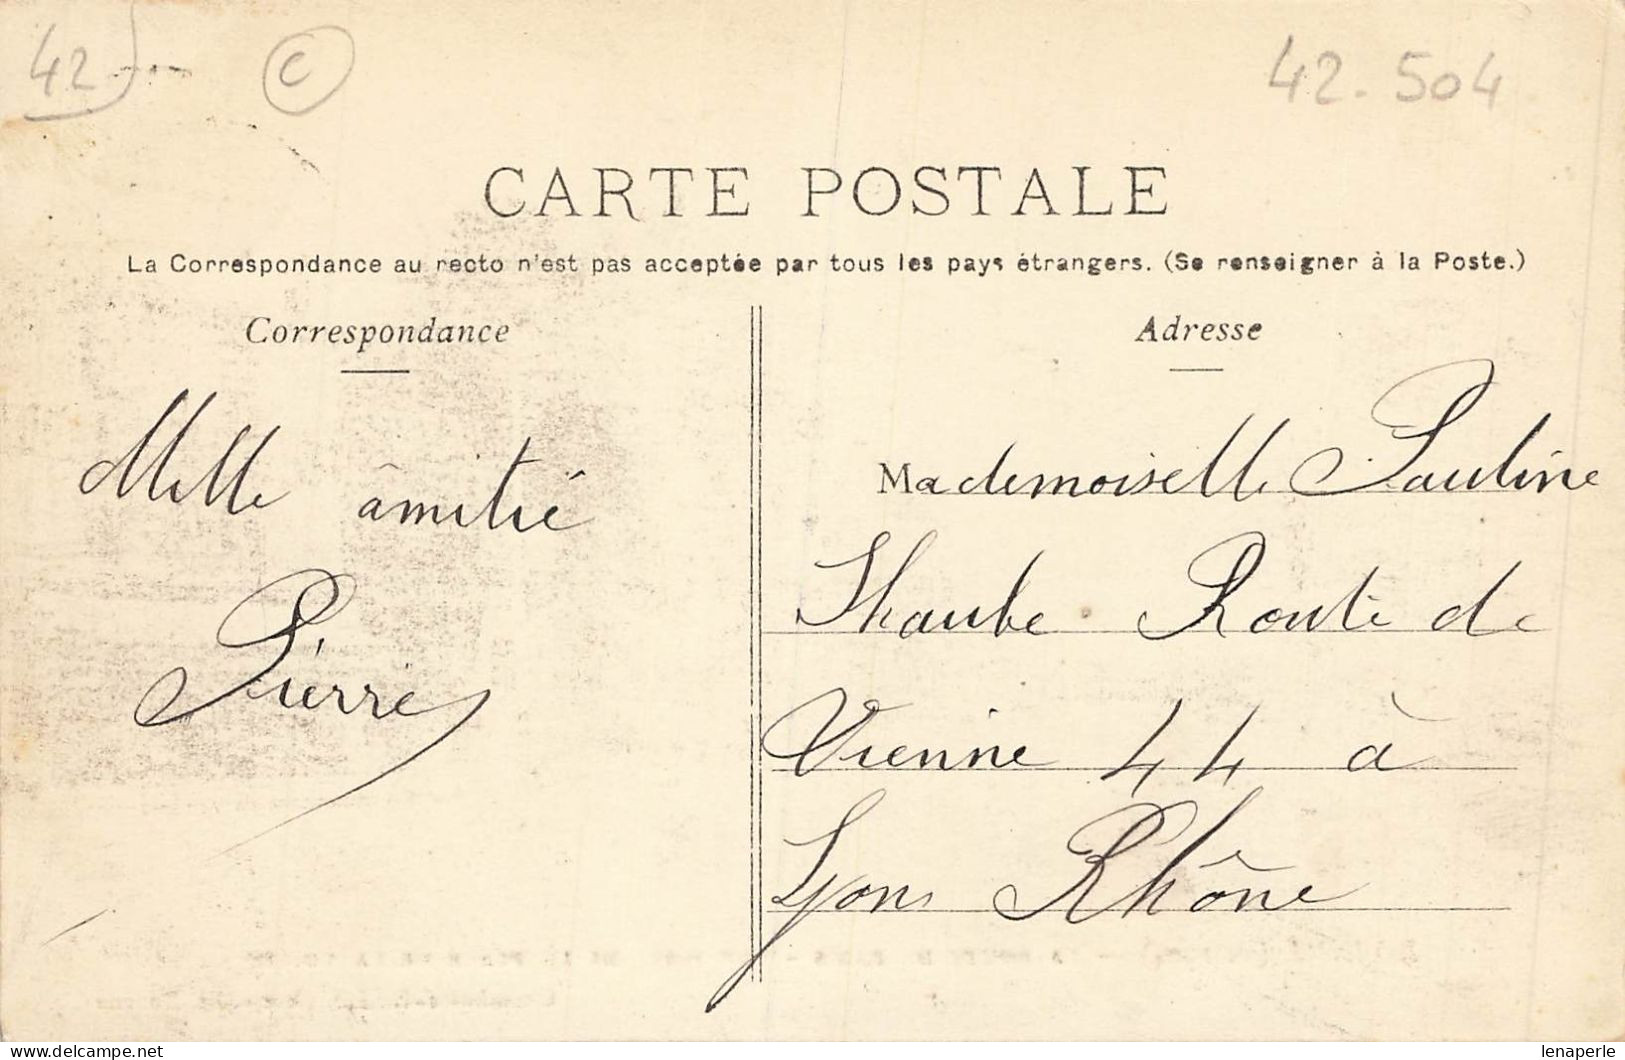 42
C
42.504
CARTE POSTALE
La Correspondance au recto n'est pas acceptée par tous les pays étrangers. (Se renseigner à la Poste.)
Correspondance
Mille âmitié
Pierre
Adresse
Mademoiselle Pauline
Thaube Route de
Vienne 44 à
Lyon Rhône
delcampe.net
lenaperle